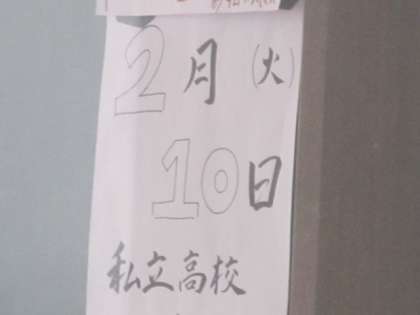 2月(火)
10日
私立高校